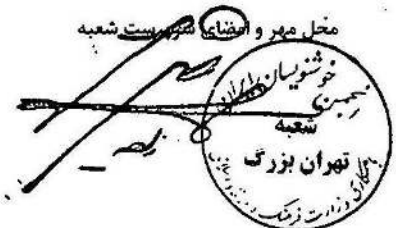 محل مهر و امضای سرپرست شعبه
انجمن خوشنویسان ایران
شعبه
تهران بزرگ
با همکاری وزارت فرهنگ و